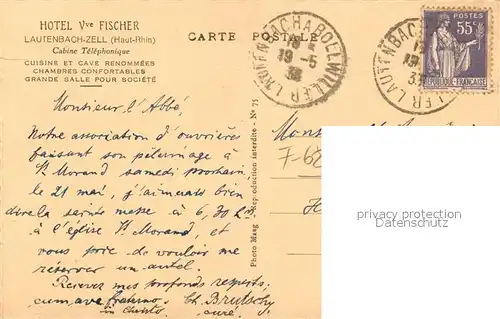 HOTEL Vve FISCHER
LAUTENBACH-ZELL (Haut-Rhin)
Cabine Téléphonique
CUISINE ET CAVE RENOMMÉES
CHAMBRES CONFORTABLES
GRANDE SALLE POUR SOCIÉTÉ
CARTE POSTALE
19-5
38
POSTES
55c
RÉPUBLIQUE FRANÇAISE
Monsieur l'Abbé,
Notre association d'ouvrières
faisant son pèlerinage à
St Morand samedi prochain,
le 21 mai, j'aimerais bien
dire la sainte messe à 6,30
à l'église St Morand, et
vous prie de vouloir me
réserver un autel.
Recevez mes profonds respects,
cum ave fraterno Ch. Brutschy
in Christo curé.
Photo Maag Reproduction interdite - No 75
7-68
privacy protection
Datenschutz